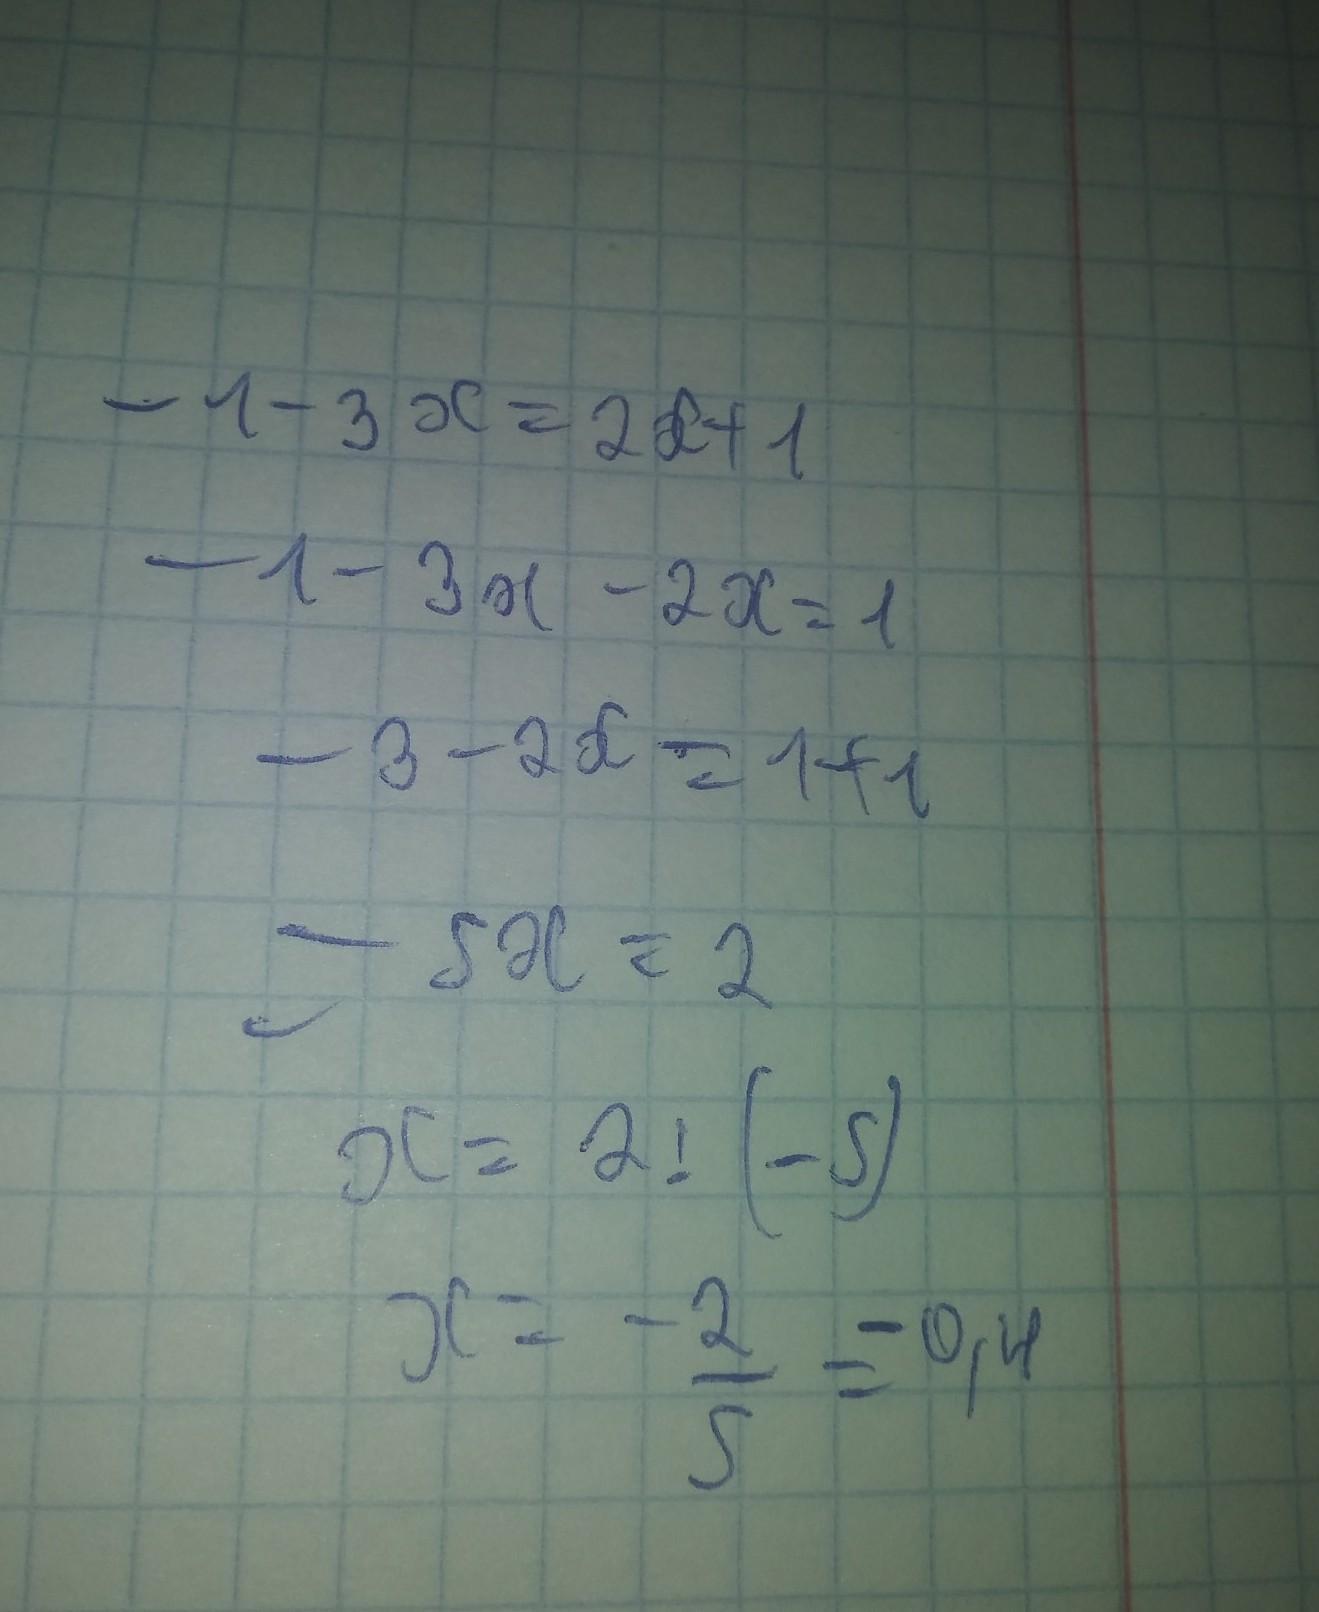 -1-3x=2x+1
-1-3x-2x=1
-3-2x=1+1
-5x=2
x=2:(-5)
x=-2/5=-0,4